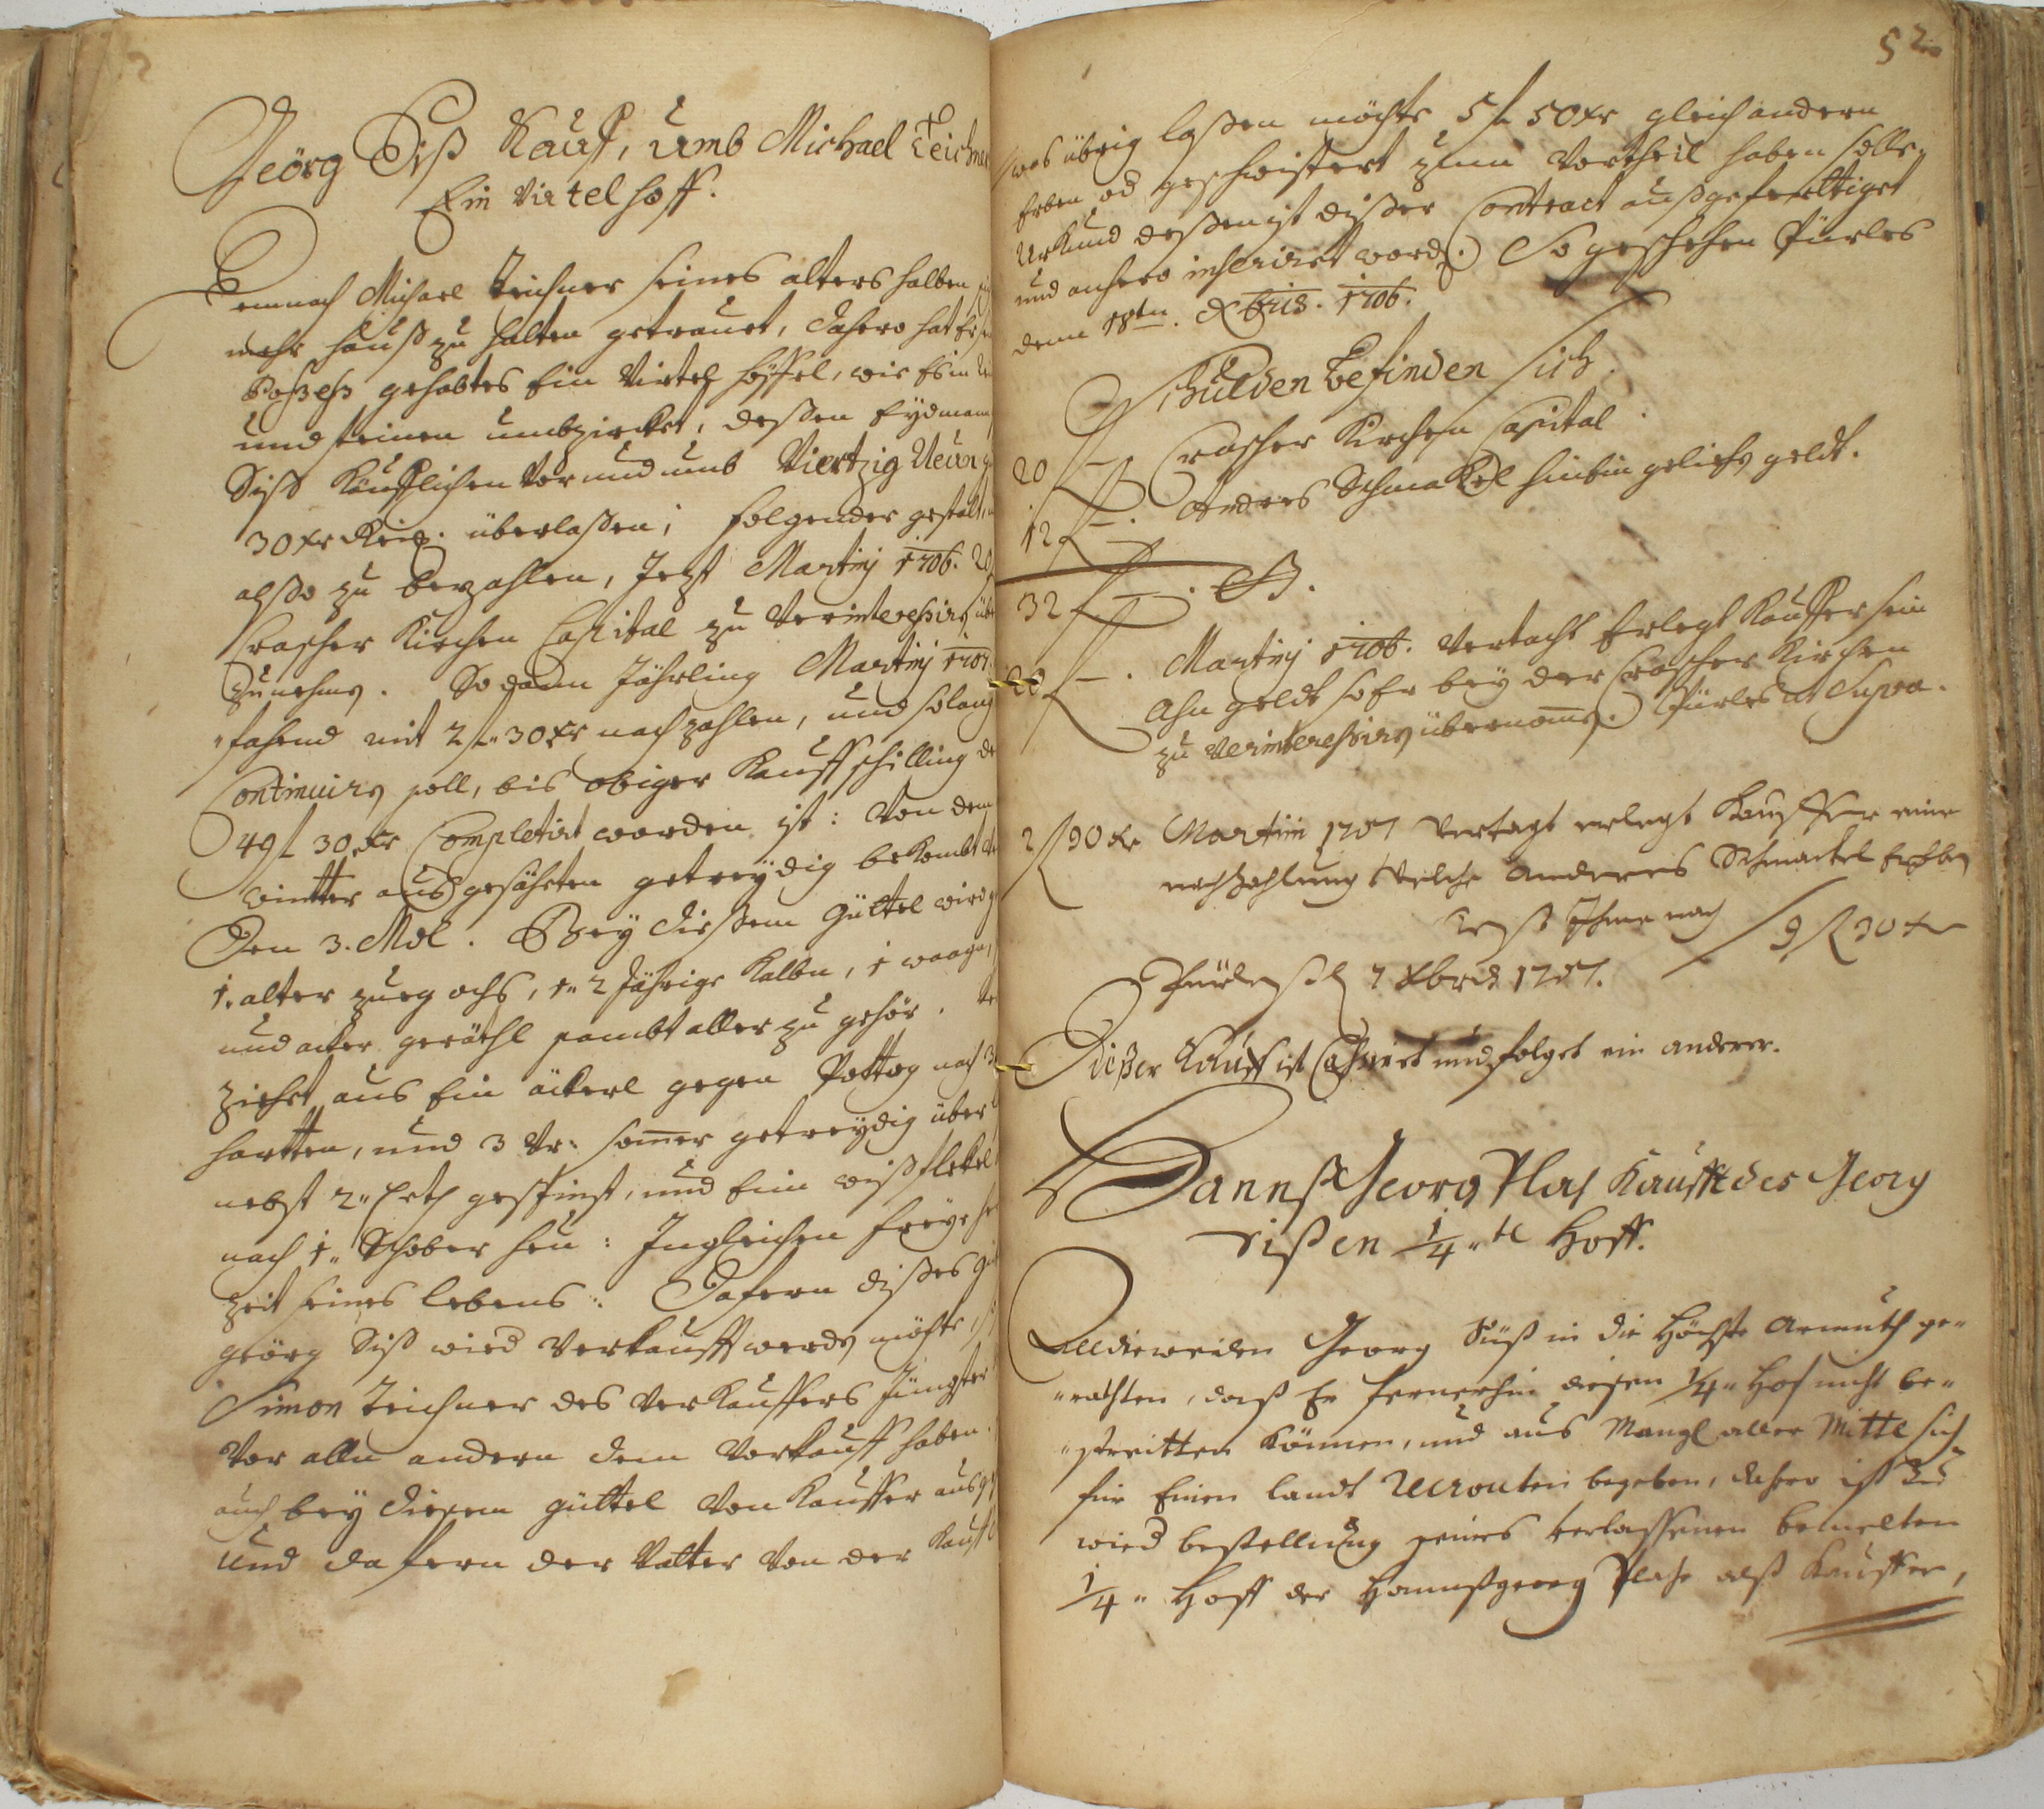 Geörg Siß Kauf, umb Michael Teichner
Ein Viertelhoff.
Demnach Michael Teichner seines alters halben
mehr hauß zu halten getrauet, dahero hat Er
Possess gehabtes Ein Viertel höffel, wie Es in
und steinen umbzircket, dessen Eydmann
Siss Käufflichen vor und umb Viertzig Neün
30 Kr Rein. überlaßen; folgender gestalt,
alßo zu bezahlen, Jezt Martinj 1706. 20
Croscher Kirchen Capital zu Verinteressirn
zunehmen. So dann Jährling Martinj 1707.
fahend mit 2 f 30 Kr nachzahlen, und solang
Continuirn soll, bis obiger Kauffschilling
49 f 30 Kr Completirt worden ist: Von dem
Wintter ausgesähten getreydig bekombt
Den 3. Mdl. Bey dießem Güttel wird
1. alter zueg ochs, 1" 2 Jährige Kalbn, 1 waagn,
und acker geräthl sambt aller zu gehör.
ziehet aus Ein äckerl gegen Pottog nach 3
hartten, und 3 Vr. somer getreydig über
nebst 2" gespinst, und Ein wißflekel
nach 1" Schober heu: Ingleichen freye
zeit seines lebens: Dafern dißes
geörg Siß wird Verkaufft werdn möchte,
Simon Teichner des Verkauffers Jüngster
Vor alln andern dem Vorkauff haben.
auch bey diesem güttel Von Kauffer
Und da fern der Vatter Von der Kauff
52
was übrig laßen möchte 5 f 50 Kr gleich andern
Erben od geschwistert zum Vortheil haben solle.
Urkund deßen ist dißer Contract außgeferttiget
und anhero inserirt wordn. So geschehen Pürles
denn 18tn. Xbris. 1706.
Schulden befinden sich.
20 f — . Croscher Kirchen Capital.
12 f — . Andres Schmakel hinbin geliehs geldt.
32 f — .
20 f — . Martinj 1706. Vertacht Erlegt Kauffer sein
Ahn geldt so Er bey der Croscher Kirchen
zu Verinteressirn übernomn. Pürles ut Supra.
2 f 30 Kr Martini 1707 Vertagt erlegt Kauffer eine
nachzahlung welche Anderes Schmackel
Rest Ihme nach 9 f 30 Kr
Pürles d 7 Xbris 1707.
Dießer Kauff ist Cassiret und folget ein anderer.
Hannß Georg Plas Kaufft des Georg
Sißen 1/4" tl Hoff.
Alldieweilen Georg Süß in die Höchste Armuth ge"
"rathten, daß Er fernerhin diesen 1/4" Hof nicht be"
"streitten können, und aus Mangl aller Mittl sich
für Einen landt Recrouten begeben, dahero ist zu
wied bestellung seines verlassenen bemelten
1/4" Hoff der Hannßgeorg Plasz alß Kauffer,